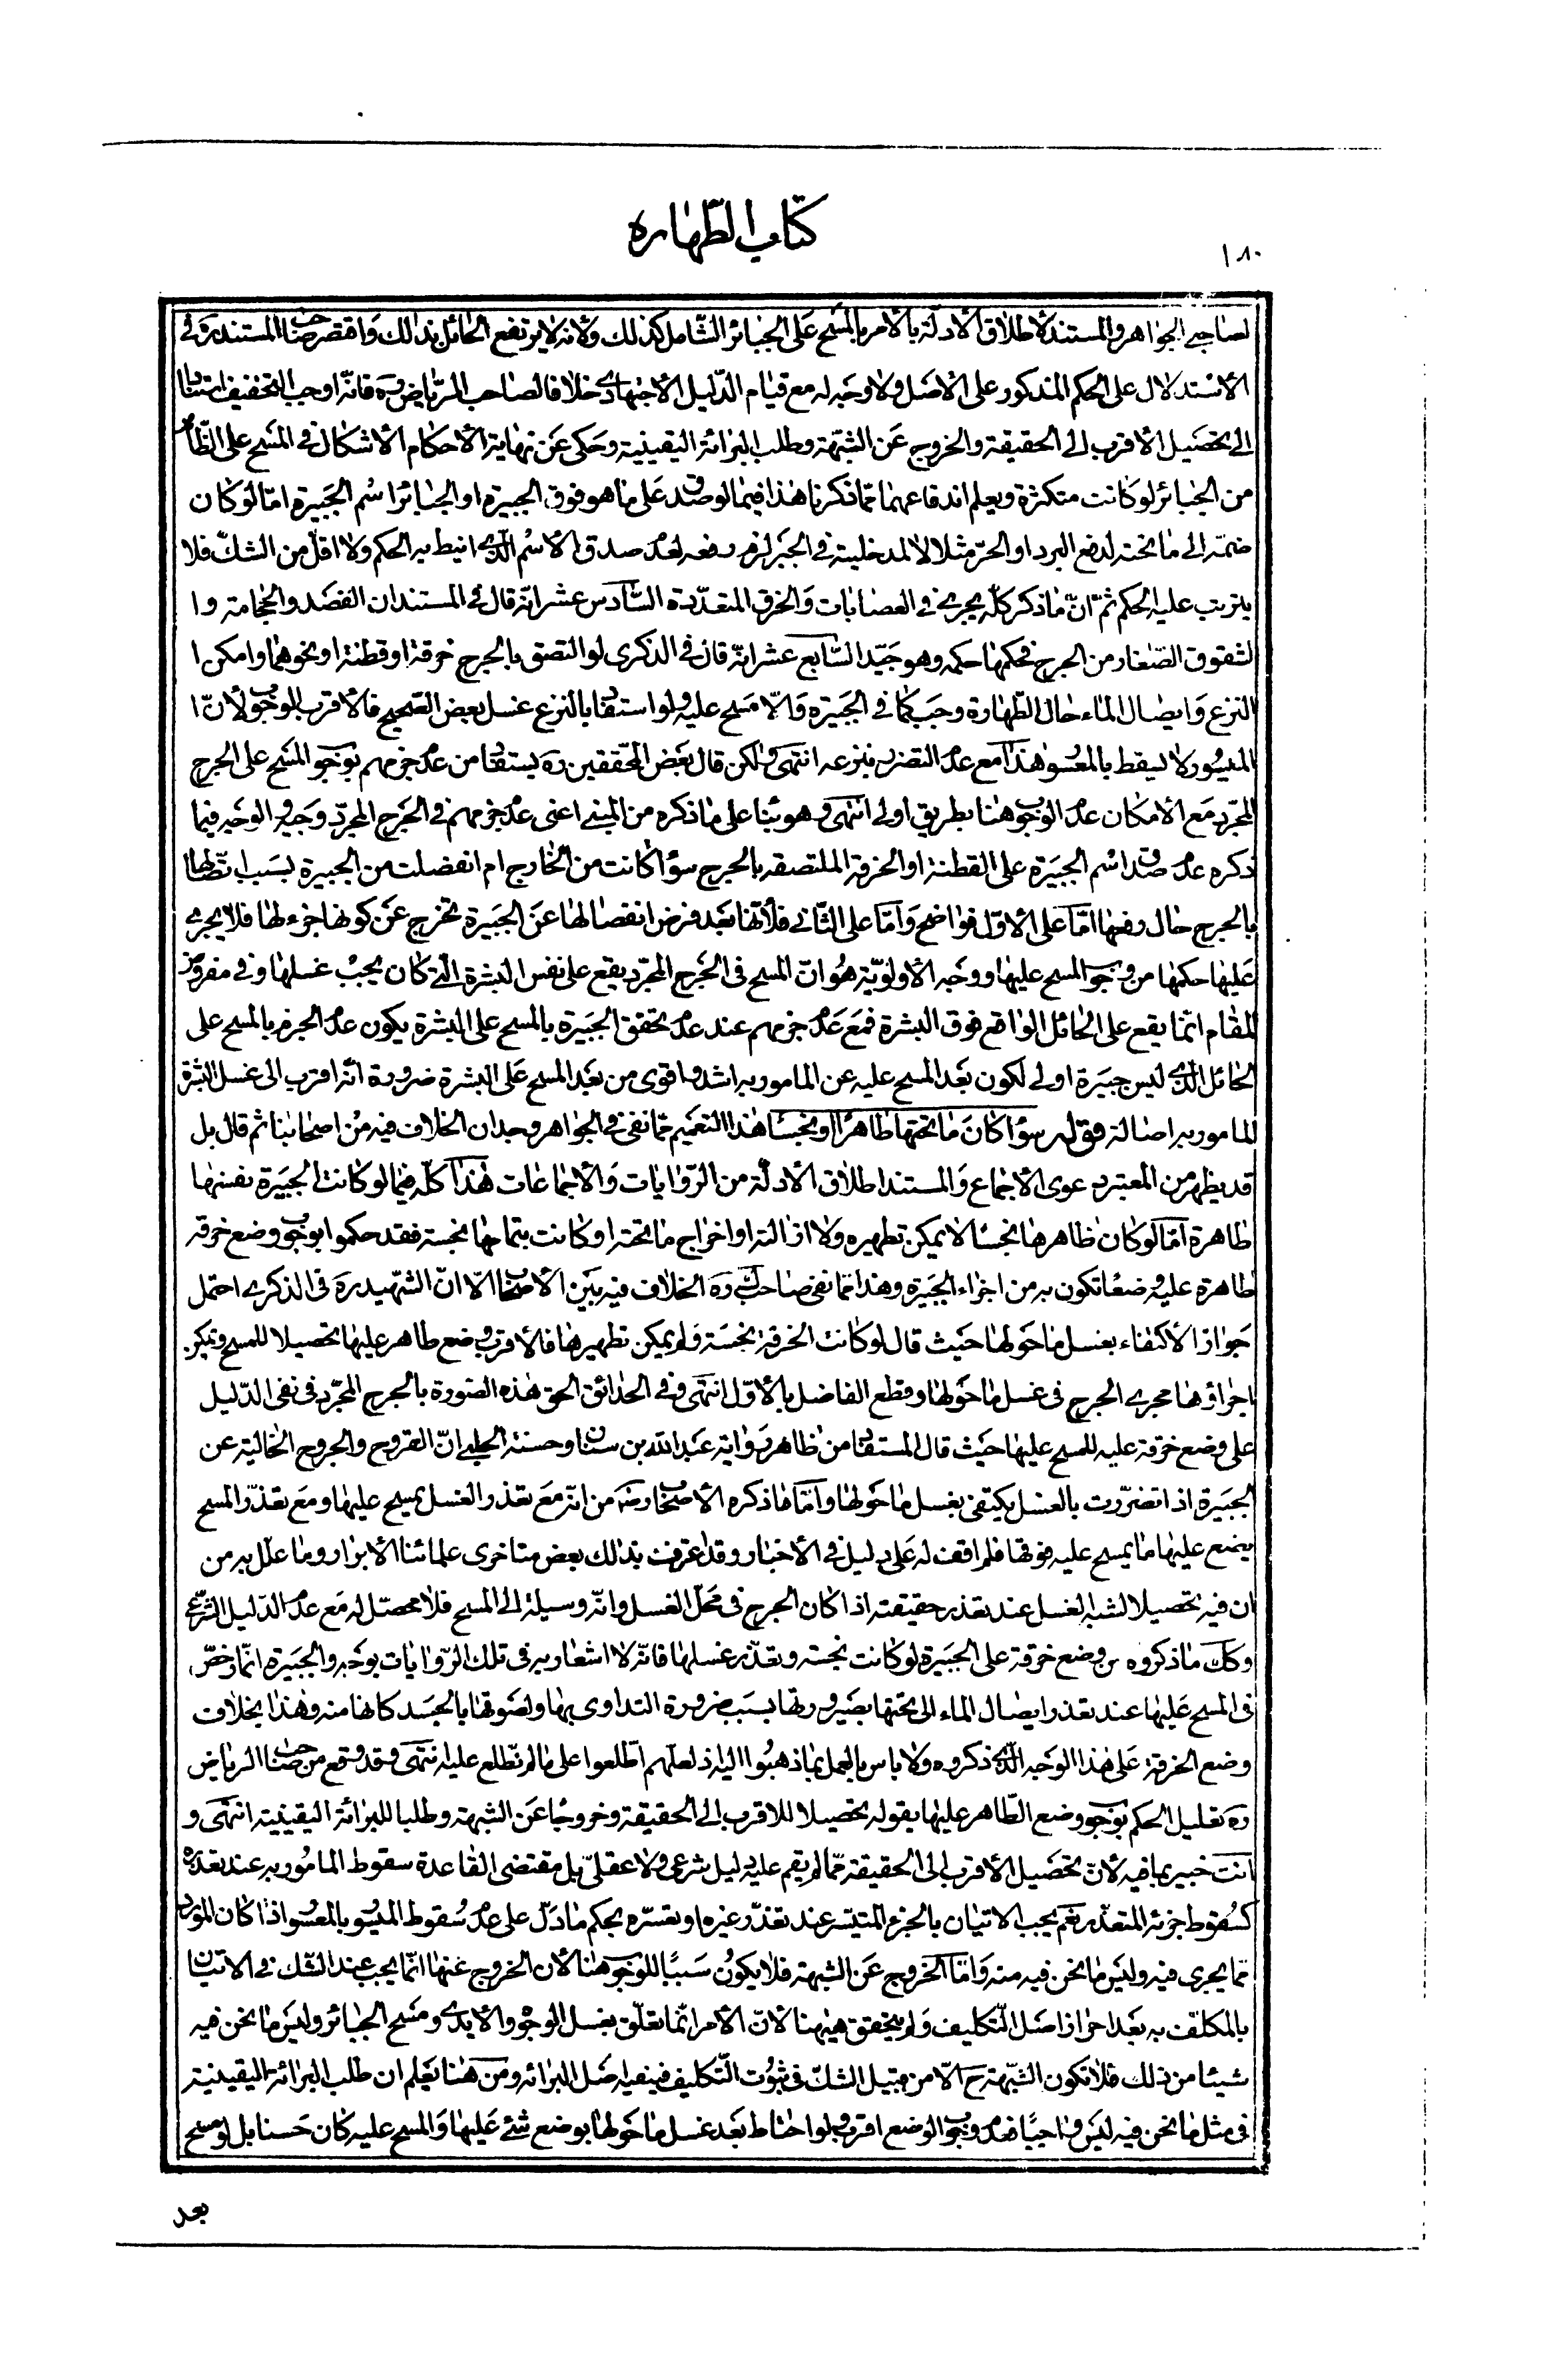 كتاب الطهارة
١٨٠
لصاحبي الجواهر والمستند لاطلاق الأدلة بالأمر بالمسح على الجبائر الشامل كذلك ولأنه لا يرتفع الحائل بذلك واقتصر صاحب المستند ره في
الأستدلال على الحكم المذكور على الأصل ولا وجه له مع قيام الدليل الأجتهادي خلافا لصاحب الرياض ره فانه اوجب التخفيف استنادا
الى تحصيل الأقرب الى الحقيقة والخروج عن الشبهة وطلب البرائة اليقينية وحكى عن نهاية الأحكام الأشكال في المسح على الظاهر
من الجبائر لو كانت متكثرة ويعلم اندفاعهما مما ذكرنا هذا فيما لو صدق على ما هو فوق الجبيرة او الجبائر اسم الجبيرة امّا لو كان
ضمه الى ما تحته لدفع البرد او الحرّ مثلا لا لمدخلية في الجبر لزم رفعه لعدم صدق الأسم الذي انيط به الحكم ولا اقل من الشك فلا
يترتب عليه الحكم ثم انّ ما ذكر كله يجري في العصابات والخرق المتعددة السادس عشر انه قال في المستند ان الفصد والحجامة وا
لشقوق الصغار من الجرح فحكمها حكمه وهو جيّد السابع عشر انه قال في الذكرى لو التصق بالجرح خرقة او قطنة او نحوهما وامكن ا
لنزع وايصال الماء حال الطهارة وجب كما في الجبيرة والّا مسح عليه ولو استفاد بالنزع غسل بعض الصحيح فالأقرب الوجوب لأنّ ا
لميسور لا يسقط بالمعسور هذا مع عدم التضرر بنزعه انتهى ولكن قال بعض المحققين ره يستفاد من عدم جزمهم بوجوب المسح على الجرح
المجرّد مع الأمكان عدم الوجوب هنا بطريق اولى انتهى وهو بناء على ما ذكره من المبنى اعنى عدم جزمهم في الجرح المجرّد وجيه الوجه فيما
ذكره عدم صدق اسم الجبيرة على القطنة او الخرقة الملتصقه بالجرح سواء كانت من الخارج ام انفصلت من الجبيرة بسبب اتصالها
بالجرح حال رفعها امّا على الأول فواضح وامّا على الثاني فلأنها بعد فرض انفصالها عن الجبيرة تخرج عن كونها جزء لها فلا يجرى
عليها حكمها من وجوب المسح عليها ووجه الأولويّة هو انّ المسح في الجرح المجرّد يقع على نفس البشرة التي كان يجب غسلها وفي مفروض
المقام انما يقع على الحائل الواقع فوق البشرة فمع عدم جزمهم عند عدم تحقق الجبيرة بالمسح على البشرة يكون عدم الجزم بالمسح على
الحائل الذي ليس جبيرة اولى لكون بعد المسح عليه عن المامور به اشد واقوى من بعد المسح على البشرة ضرورة انّه اقرب الى غسل البشرة
المامور به اصالة قوله سواء كان ما تحتها طاهرا او نجسا هذا التعميم مما نفى في الجواهر وجدان الخلاف فيه من اصحابنا ثم قال بل
قد يظهر من المعتبر دعوى الأجماع والمستند اطلاق الأدلّة من الرّوايات والأجماعات هذا كلّه فيما لو كانت الجبيرة نفسها
طاهرة امّا لو كان ظاهرها نجسا لا يمكن تطهيره ولا ازالته او اخراج ما تحته او كانت بتمامها نجسة فقد حكموا بوجوب وضع خرقة
طاهرة عليه وضعا تكون به من اجزاء الجبيرة وهذا مما نفى صاحب ك ره الخلاف فيه بين الأصحاب الّا انّ الشّهيد ره في الذكرى احتمل
جواز الأكتفاء بغسل ما حولها حيث قال لو كانت الخرقة نجسة ولم يمكن تطهيرها فالأقرب وضع طاهر عليها تحصيلا للمسح ويمكن
اجراؤها مجرى الجرح في غسل ما حولها وقطع الفاضل بالأوّل انتهى وفي الحدائق الحق هذه الصورة بالجرح المجرّد في نفى الدّليل
على وضع خرقة عليه للمسح عليها حيث قال المستفاد من ظاهر رواية عبد الله بن سنان وحسنة الحلبي انّ القروح والجروح الخالية عن
الجبيرة اذا تضرّرت بالغسل يكتفى بغسل ما حولها وامّا ما ذكره الأصحاب رض من انّه مع تعذر الغسل يمسح عليها ومع تعذّر المسح
يضع عليها ما يمسح عليه فوقها فلم اقف له على دليل في الأخبار وقد اعترف بذلك بعض متاخرى علمائنا الأبرار وما علّل به من
ان فيه تحصيلا لشبه الغسل عند تعذر حقيقته اذا كان الجرح في محلّ الغسل وانّه وسيلة الى المسح فلا محصّل له مع عدم الدّليل الشرعي
وكك ما ذكروه من وضع خرقة على الجبيرة لو كانت نجسة وتعذّر غسلها فانّه لا اشعار به في تلك الرّوايات بوجه والجبيرة انّما رخّص
في المسح عليها عند تعذر ايصال الماء الى تحتها بصيرورتها بسبب ضرورة التداوى بها ولصوقها بالجسد كانها منه وهذا بخلاف
وضع الخرقة على هذا الوجه الذي ذكروه ولا باس بالعمل بما ذهبوا اليه اذ لعلّهم اطّلعوا على ما لم نطّلع عليه انتهى وقد وقع من صاحب الرياض
ره تعليل الحكم بوجوب وضع الطّاهر عليها بقوله تحصيلا للاقرب الى الحقيقة وخروجا عن الشبهة وطلبا للبرائة اليقينية انتهى و
انت خبير بما فيه لأن تحصيل الأقرب الى الحقيقة ممّا لم يقم عليه دليل شرعي ولا عقليّ بل مقتضى القاعدة سقوط المامور به عند تعذره
كسقوط جزئه المتعذر نعم يجب الاتيان بالجزء المتيسّر عند تعذّر غيره او تعسّره بحكم ما دلّ على عدم سقوط الميسور بالمعسور اذا كان المورد
ممّا يجرى فيه وليس ما نحن فيه منه وامّا الخروج عن الشبهة فلا يكون سببا للوجوب هنا لأن الخروج عنها انّما يجب عند الشّك في الاتيان
بالمكلّف به بعد احراز اصل التّكليف ولم يتحقق هيهنا لأنّ الأمر انّما تعلّق بغسل الوجوه والأيدى ومسح الجبائر وليس ما نحن فيه
شيئا من ذلك فلا تكون الشّبهة ح الّا من قبيل الشكّ في ثبوت التّكليف فينفيه اصل البرائه ومن هنا يعلم ان طلب البرائة اليقينية
في مثل ما نحن فيه ليس واجبا فعدم وجوب الوضع اقرب ولو احتاط بعد غسل ما حولها بوضع شئ عليها والمسح عليه كان حسنا بل لو مسح
بعد